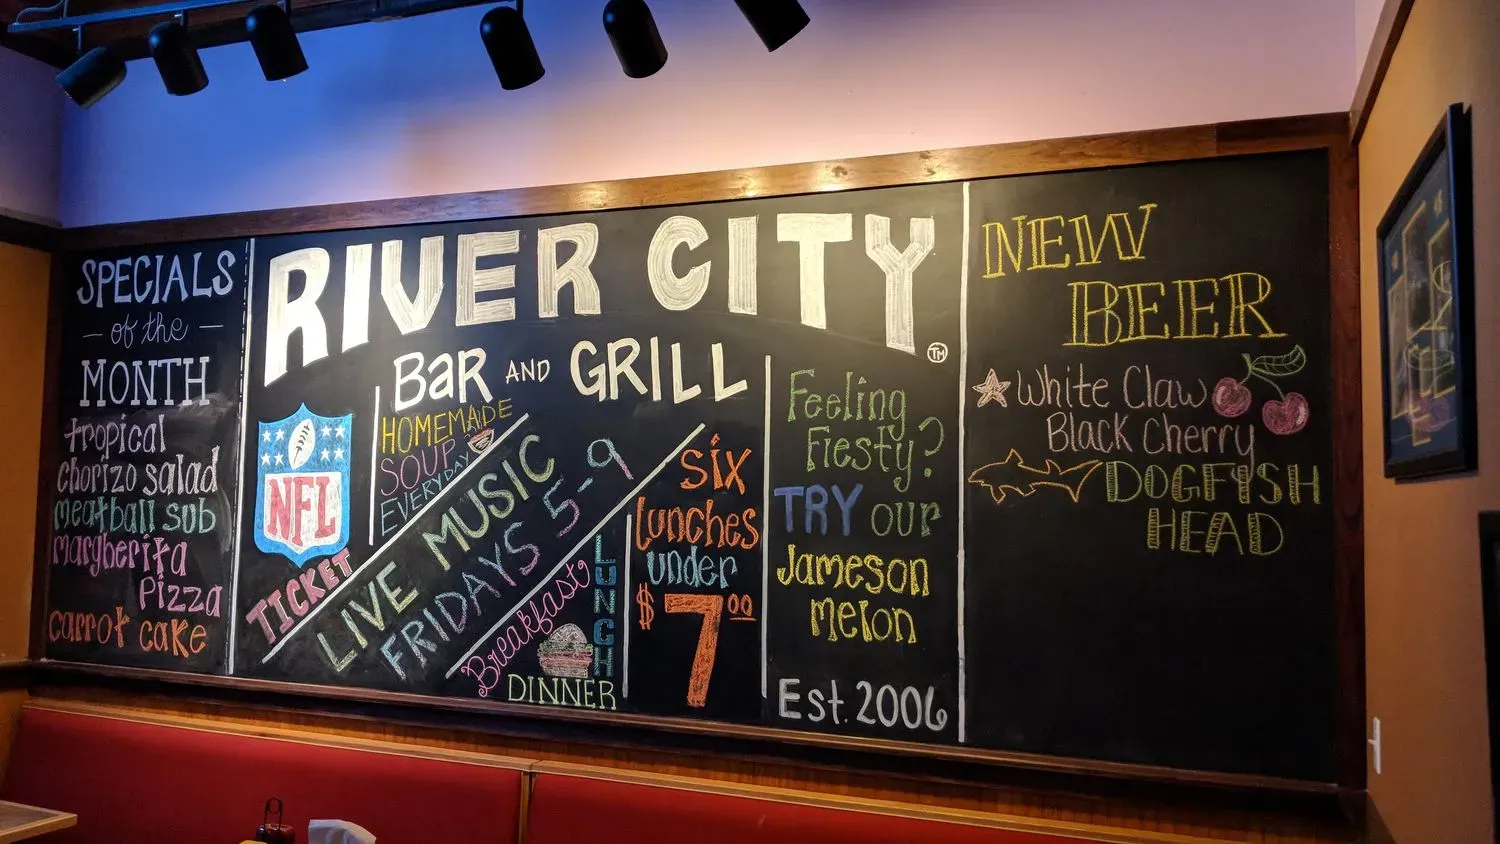 SPECIALS
of the
MONTH
tropical
chorizo salad
meatball sub
margherita
Pizza
carrot cake
RIVER CITY
TM
BaR AND GRILL
NFL
TICKET
HOMEMADE
SOUP
EVERYDAY
LIVE MUSIC
FRIDAYS 5-9
Breakfast
LUNCH
DINNER
SIX
Lunches
under
$7.00
Feeling
Fiesty?
TRY our
Jameson
melon
Est. 2006
NEW
BEER
White Claw
Black Cherry
DOGFISH
HEAD